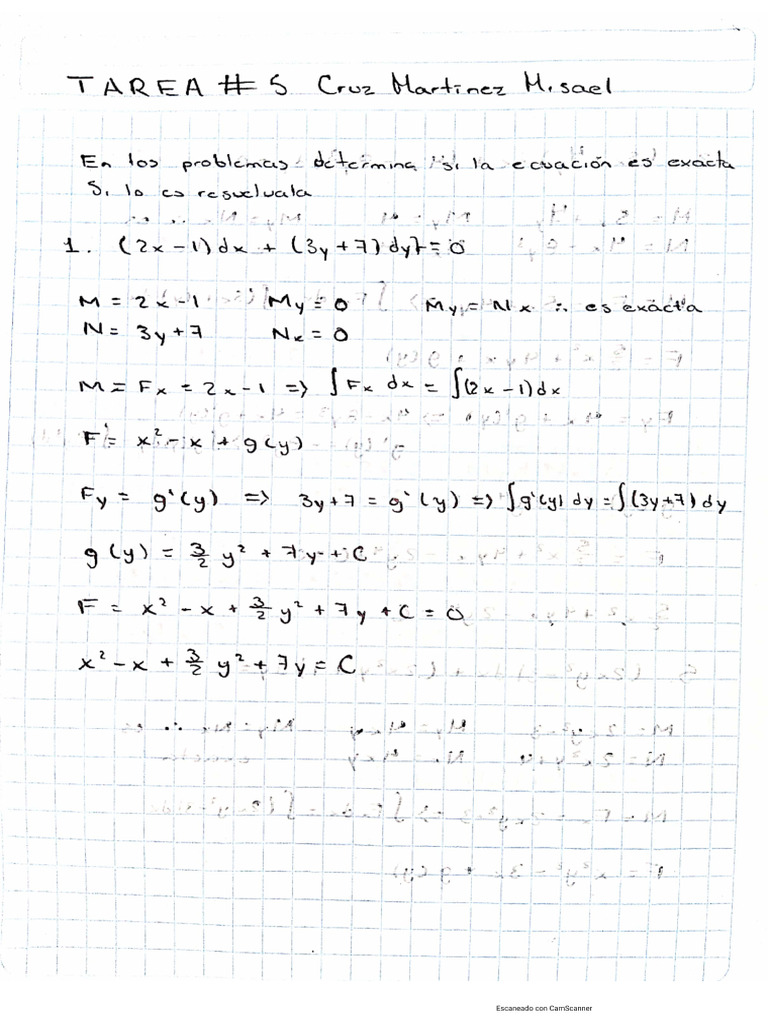 TAREA # 5 Cruz Martinez Misael
En los problemas determina si la ecuación es exacta
Si lo es resuelvala
1. (2x-1)dx + (3y+7)dy} = 0
M = 2x-1 My = 0 My = Nx ∴ es exacta
N = 3y+7 Nx = 0
M = Fx = 2x-1 => ∫Fx dx = ∫(2x-1)dx
F = x² - x + g(y)
Fy = g'(y) => 3y+7 = g'(y) => ∫g'(y) dy = ∫(3y+7) dy
g(y) = 3/2 y² + 7y + C
F = x² - x + 3/2 y² + 7y + C = 0
x² - x + 3/2 y² + 7y = C
Escaneado con CamScanner